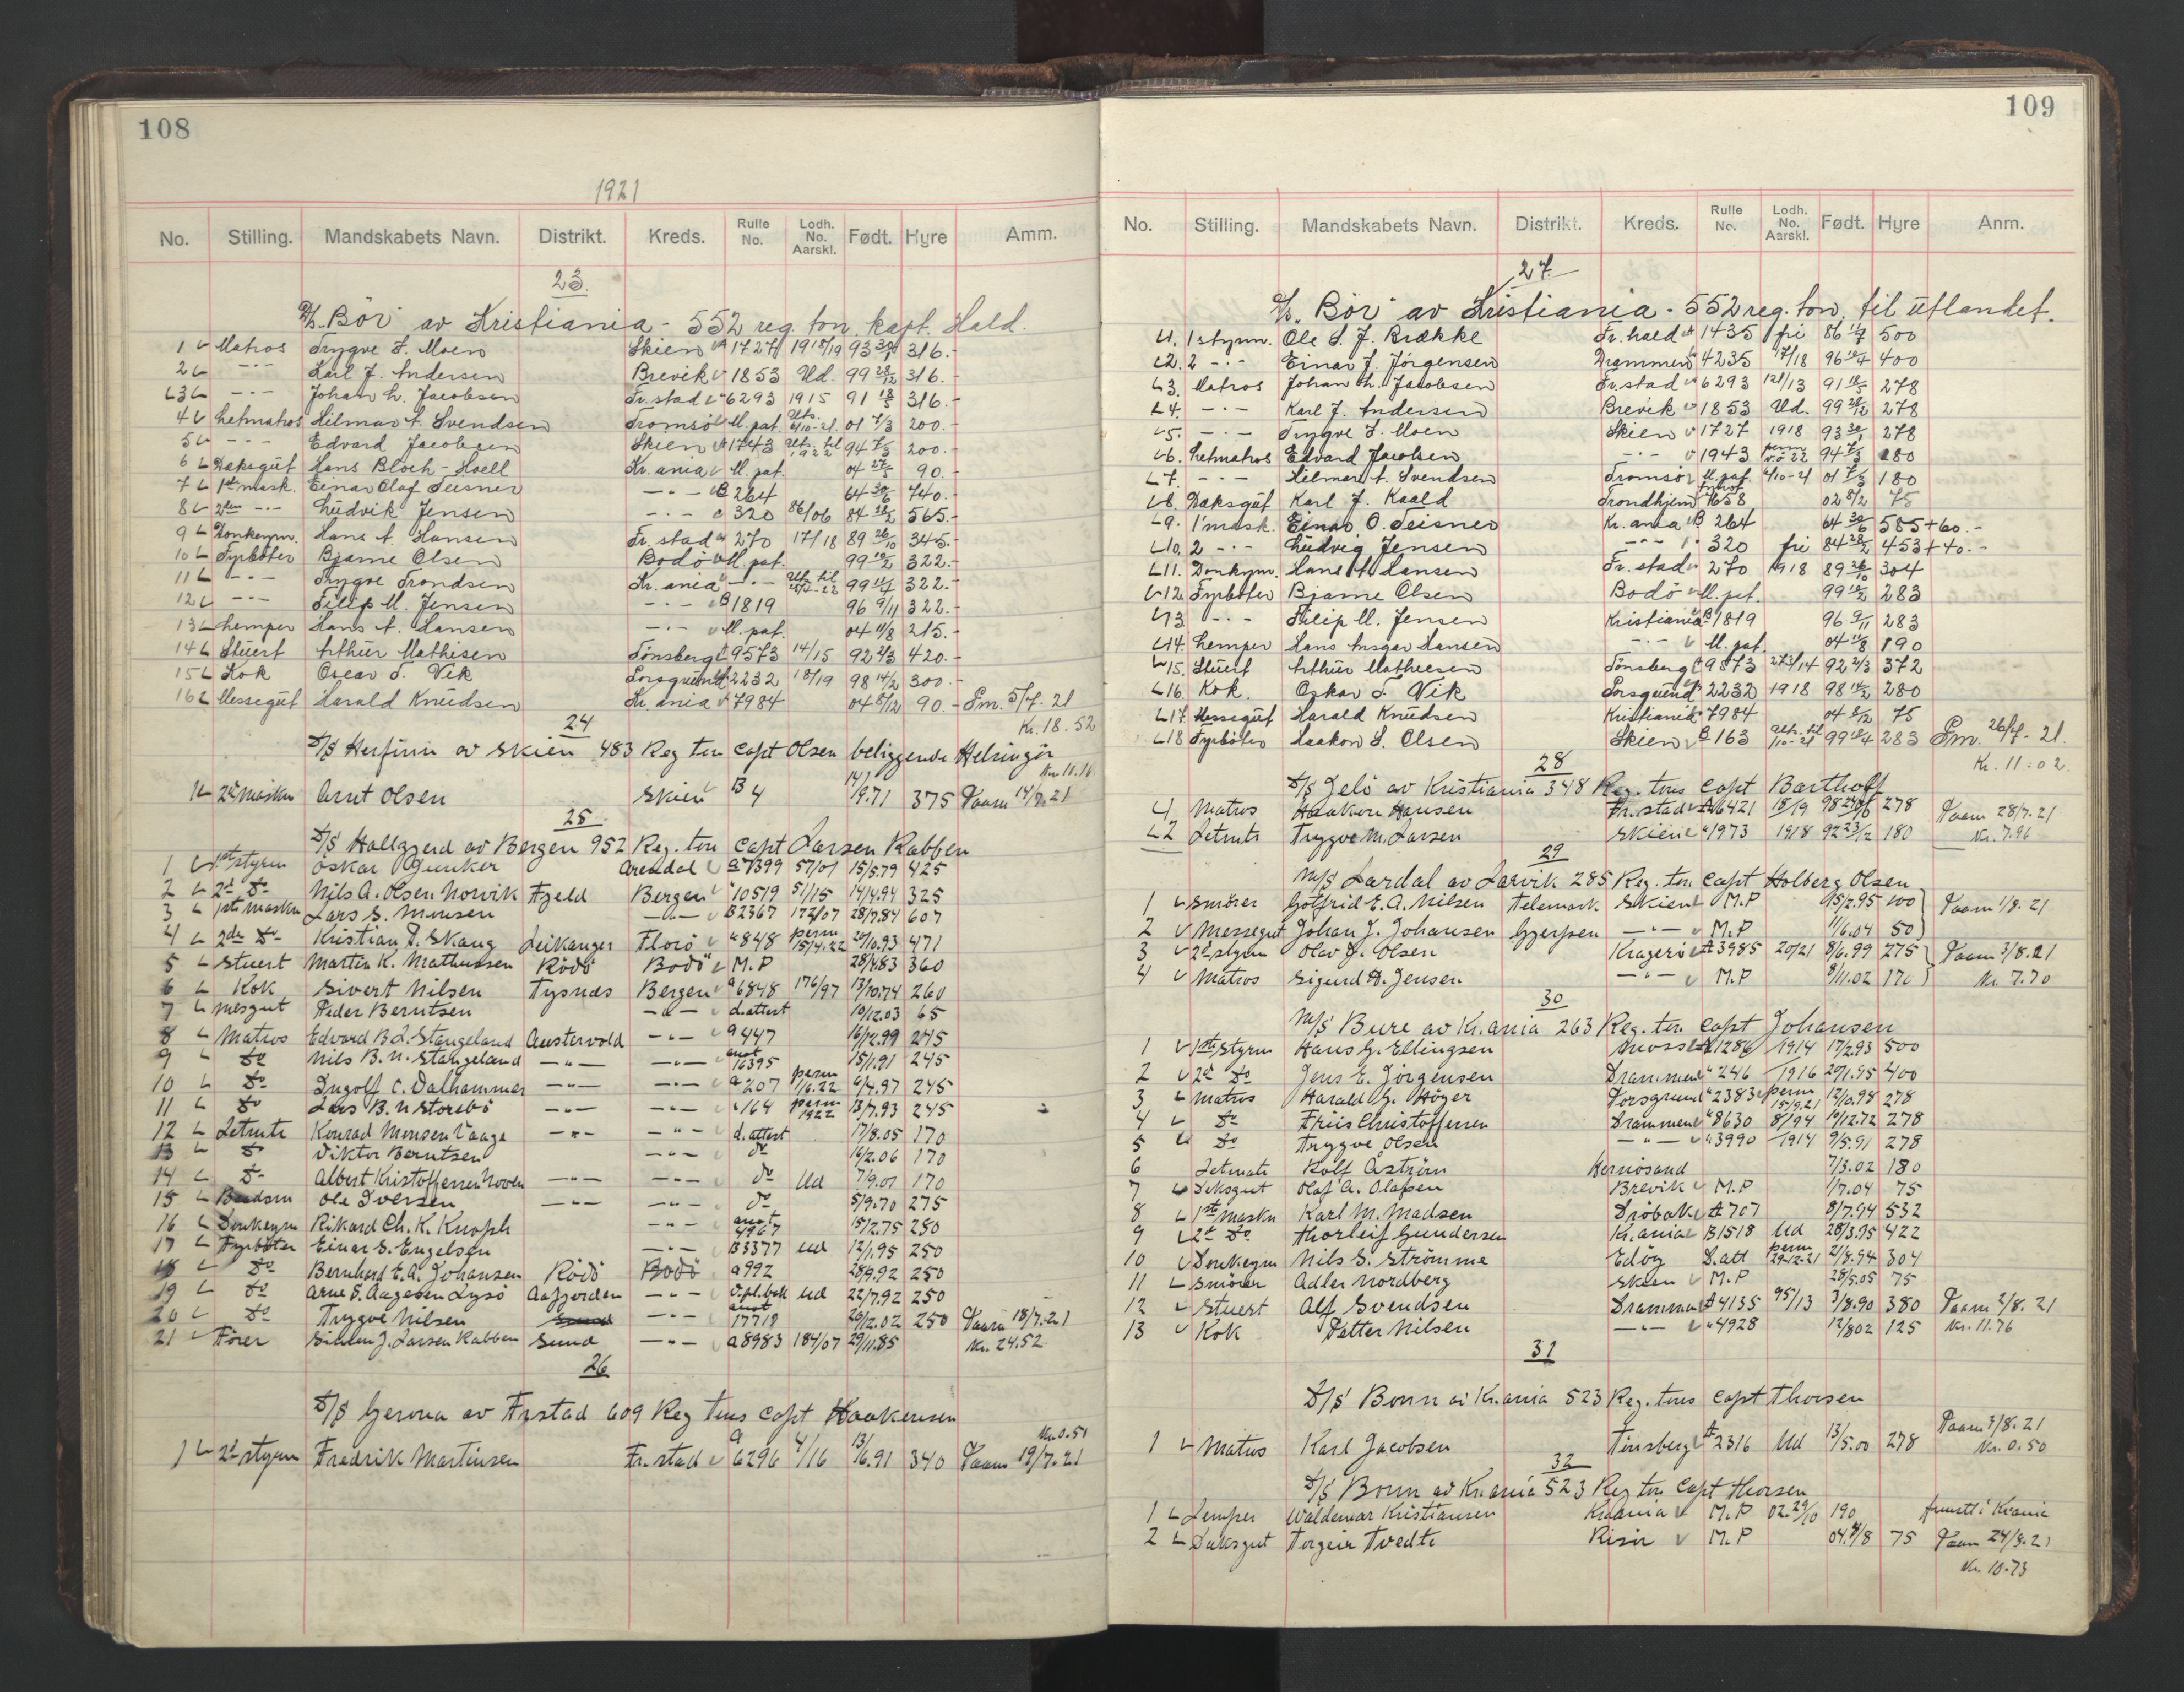 108
1921
No. Stilling. Mandskabets Navn. Distrikt. Kreds. Rulle No. Lodh. No. Aarskl. Født. Hyre Amm.
23
D/S. Bör av Kristiania - 552 reg. ton. kapt. Hald.
1 Matros Trygve S. Moen Skien A 1727 1918/19 93 30/1 316.-
2 -"- Karl J. Andersen Brevik 1853 Ud. 99 28/12 316.-
3 -"- Johan L. Jacobsen Fr.stad 6293 1915 91 18/5 316.-
4 Letmatros Hilmar A. Svendsen Tromsö M. pat. Uts. 1/10-21. 01 7/3 200.-
5 -"- Edvard Jacobsen Skien 1743 Uts. til 1922 94 7/3 200.-
6 Dæksgut Hans Bloch-Hoell Kr.ania M. pat. 04 27/5 90.-
7 1ste mask. Einar Olaf Teisner -"- B 264 64 30/6 740.-
8 2den -"- Ludvik Jensen -"- 320 86/06 84 28/2 565.-
9 Donkeym. Hans A. Hansen Fr.stad 270 17/18 89 26/10 345.-
10 Fyrböter Bjarne Olsen Bodö M. pat. 99 10/2 322.-
11 -"- Trygve Trondsen Kr.ania -"- Uts. til 99 11/4 322.-
12 -"- Filip M. Jensen -"- B 1819 96 9/11 322.-
13 Lemper Hans A. Hansen -"- M. pat. 04 11/8 215.-
14 Stuert Arthur Mathisen Tönsberg A 9573 14/15 92 2/3 420.-
15 Kok Oscar T. Vik Porsgrund 2232 18/19 98 14/2 300.-
16 Messegut Harald Knudsen Kr.ania 7984 04 8/12 90.- Em. 5/7. 21
24 Kr. 18.52
D/S Herfinn av Skien 483 Reg ton Capt Olsen beliggende Helsingör
Kr. 11.11
1 2d maskn Arnt Olsen Skien B 4 14/9.71 375 Paam 14/7.21
25
D/S Hallgjerd av Bergen 952 Reg. ton Capt Larsen Rabben
1 1st styrm Oskar Gunker Arendal a 7399 57/01 15/5.79 425
2 2d Do Nils A. Olsen Norvik Fjeld Bergen " 10519 51/15 14/4.94 325
3 1ste maskn Lars S. Monsen -"- B 2367 172/07 28/7.84 607
4 2de Do Kristian D. Skaug Leikanger Florö " 848 perm 15/4.22 20/10.93 471
5 Stuert Martin K. Mathussen Rödö Bodö M.P 28/4.83 360
6 Kok Sivert Nilsen Tysnæs Bergen a 6848 176/97 13/10.74 260
7 mesgut Peder Berntsen -"- d. attest 10/12.03 65
8 Matros Edvard B. L. Stangeland Austervold -"- a 447 16/12.99 245
9 Do Nils B. N. Stangeland -"- -"- anot 16395 15/1.91 245
10 Do Ingolf C. Valhammer -"- -"- a 207 perm 1/6.22 6/4.97 245
11 Do Lars B. N Storebö -"- -"- " 164 perm 1922 13/7.93 245
12 Letmts Konrad Monsen Vaage -"- -"- d. attest 17/8.05 170
13 Do Viktor Berntsen -"- do 16/2.06 170
14 Do Albert Kristoffersen Hoven -"- -"- do Ud 7/9.01 170
15 Baadsm Ole Iversen -"- -"- do 5/9.70 275
16 Donkeym Rikard Ch. K. Knoph -"- anot 4967 15/2.75 280
17 Fyrböter Einar S. Engelsen -"- B 3377 Ud 12/1.95 250
18 Do Bernhard E. A. Johansen Rödö Bodö a 992 28/9.92 250
19 Do Arne T. Aagesen Lysö Aafjorden -"- Ud 22/7.92 250
20 Do Trygve Nilsen Sund -"- anot 17718 20/12.02 250 Paam 18/7.21
21 Förer Simen J. Larsen Rabben Sund -"- a 8983 184/07 29/11.85 Kr. 24.52
26
D/S Gerona av Frstad 609 Reg tons Capt Haakensen
Kr. 0.51
1 2d styrm Fredrik Martinsen Fr.stad a 6296 4/16 13/6.91 340 Paam 19/7.21
109
No. Stilling. Mandskabets Navn. Distrikt. Kreds. Rulle No. Lodh. No. Aarskl. Født. Hyre Anm.
27.
D/S. Bör av Kristiania - 552 reg. ton. til utlandet.
1. 1 styrm. Ole S. J. Brække Fr. hald A 1435 fri 86 11/7 500
2. 2 -"- Einar J. Jörgensen Drammen 4235 17/18 96 12/4 400
3. Matros Johan L. Jacobsen Fr.stad 6293 121/13 91 18/5 278
4. -"- Karl J. Andersen Brevik 1853 Ud. 99 28/12 278
5. -"- Trygve S. Moen Skien 1727 1918 93 30/1 278
6. Letmatros Edvard Jacobsen -"- 1943 perm 94 7/3 180
7. -"- Hilmar A. Svendsen Tromsö M. pat. 1/10-21 01 7/3 180
8. Dæksgut Karl J. Kaald Trondhjem 7658 02 8/2 75
9. 1 mask. Einar O. Teisner Kr.ania B 264 64 30/6 585+60.-
10. 2 -"- Ludvig Jensen -"- 320 fri 84 28/2 453+40.-
11. Donkym. Hans A. Hansen Fr.stad 270 1918 89 26/10 304
12. Fyrböter Bjarne Olsen Bodö M. pat. 99 10/2 283
13 -"- Filip M. Jensen Kristiania B 1819 96 9/11 283
14. Lemper Hans Ansgar Hansen -"- M. pat. 04 11/8 190
15. Stuert Arthur Mathiesen Tönsberg A 9573 273/14 92 2/3 372
16. Kok. Oskar T. Vik Porsgrund 2232 1918 98 14/2 280
17. Messegut Harald Knudsen Kristiania 7984 04 8/12 75
18 Fyrböter Haakon S. Olsen Skien B 163 Uts. til 1/10-21 99 12/4 283 Em. 26/7-21.
28 Kr. 11:02.
D/S Jelö av Kristiania 348 Reg. tons Capt Bartholf
1 Matros Haakon Hansen Fr.stad A 6421 18/9 98 278 Paam 28/7.21
2 Letmts Tryggve M. Larsen Skien " 1973 1918 92 23/12 180 Kr. 7.96
29
M/S Lardal av Larvik 285 Reg. ton Capt Holberg Olsen
1 Smörer Gotfrid E. A. Nilsen Telemark Skien M.P 15/2.95 100 Paam 1/8. 21
2 Messegut Johan J. Johansen Gjerpen -"- M.P 11/6.04 50
3 2d styrm Olav J. Olsen Kragerö A 3985 20/21 8/6.99 275 Paam 3/8.21
4 Matros Sigurd A. Jensen -"- M.P 8/11.02 170 Kr. 7.70
30
M/S Bure av Kr.ania 263 Reg. ton Capt Johansen
1 1ste Styrm Hans G. Ellingsen Moss A 1286 1914 17/2.93 500
2 2d Do Jens E. Jörgensen Drammen " 246 1916 20/1.95 400
3 Matros Harald G. Höyer Porsgrund " 2383 perm 15/9.21 12/10.98 278
4 Do Friis Christoffersen Drammen " 8630 8/94 10/12.72 278
5 Do Tryggve Olsen -"- " 3990 1914 9/5.91 278
6 Letmats Rolf Åström Hernösand 7/3.02 180
7 Deksgut Olaf A. Olafsen Brevik M.P 1/7.04 75
8 1ste Maskn Karl M. Madsen Dröbak A 707 8/7.94 532
9 2de Do Thorleif Gundersen Kr.ania B 1518 Ud 28/3.95 422
10 Donkeym Nils S. Strömme Edöy D. att perm 29-12-21 21/8.94 304
11 Smörer Adler Nordberg Skien M.P 28/5.05 75
12 Stuert Alf Svendsen Drammen A 4135 95/13 3/8.90 380 Paam 2/8. 21
13 Kok Petter Nilsen -"- " 4928 12/8 02 125 Kr. 11.76
31
D/S Bonn av Kr.ania 523 Reg. tons Capt Thorsen
Paam 3/8.21
1 Matros Karl Jacobsen Tönsberg A 2316 Ud 13/5.00 278 Kr. 0.50
32
D/S Bonn av Kr.ania 523 Reg ton Capt Thorsen
1 Lemper Waldemar Kristiansen Kr.ania M.P 02. 29/10 190 i Krania
2 Deksgut Torgeir Tvedte Risör M.P 04. 4/8 75 Paam 24/8.21
Kr. 10.73